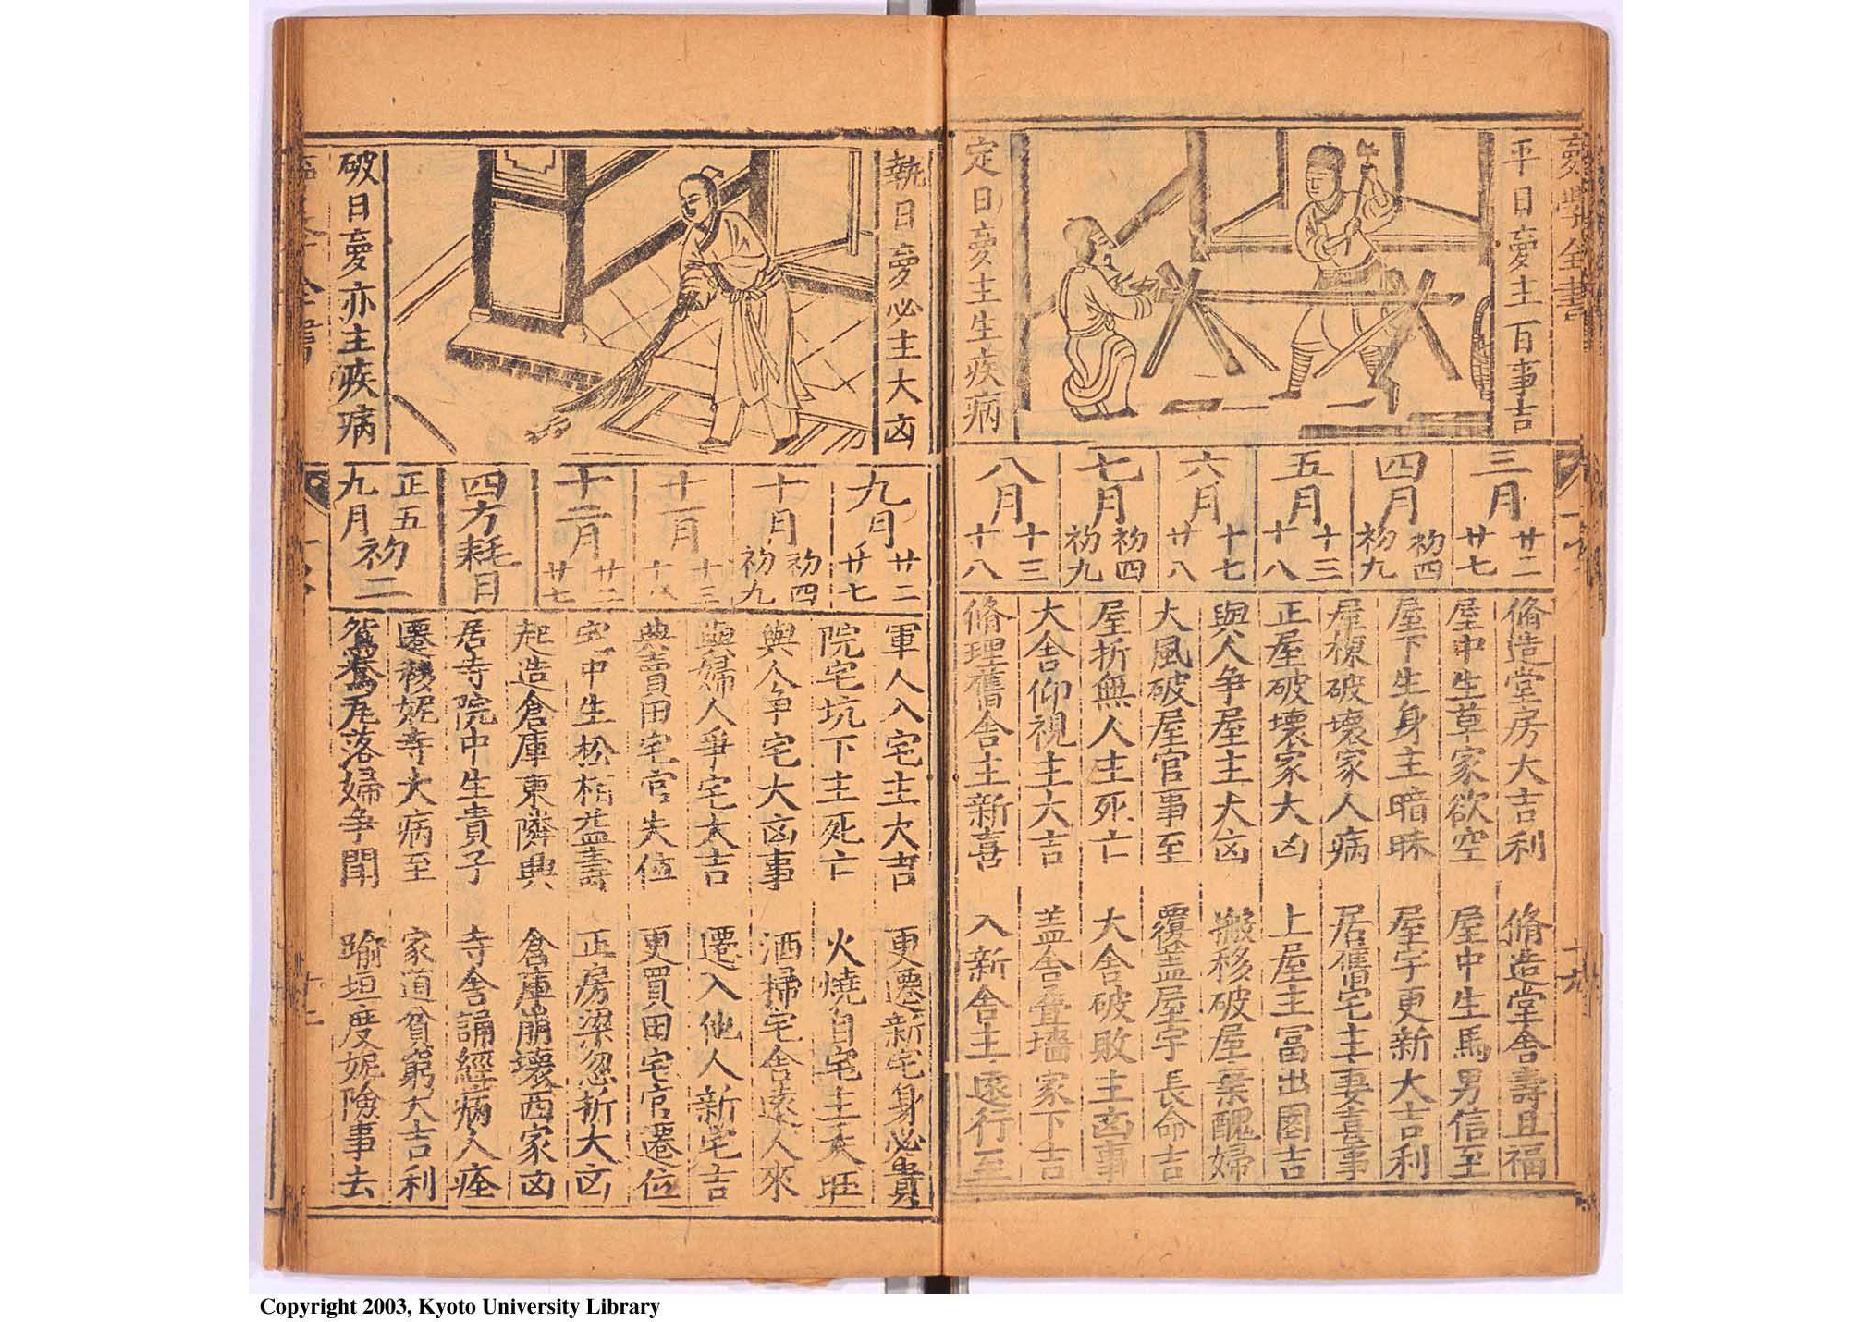 平日夣主百事吉
定日夣主生疾病
三月 廿二 廿七
四月 初四 初九
五月 十三 十八
六月 十七 廿八
七月 初四 初九
八月 十三 十八
脩造堂房大吉利
屋中生草家欲空
屋下生身主暗昧
屋棟破壞家人病
正屋破壞家大凶
與人争屋主大凶
大風破屋官事至
屋折無人主死亡
大舍仰視主大吉
脩理舊舍主新喜
脩造堂舍壽且福
屋中生馬男信至
屋宇更新大吉利
居舊宅主妻喜事
上屋主冨出圂吉
搬移破屋棄醜婦
覆盖屋宇長命吉
大舍破敗主凶事
盖舍叠墻家下吉
入新舍主遠行至
執日夣必主大凶
破日夣亦主疾病
九月 廿二 廿七
十月 初四 初九
十一月 十三 十八
十二月 廿二 廿七
四方耗日
正五九月初二
軍人入宅主大吉
院宅坑下主死亡
與人争宅大凶事
與婦人爭宅大吉
典賣田宅官失位
宅中生松栢益壽
起造倉庫東隣興
居寺院中生貴子
遷移妮寺大病至
鴛鴦瓦落婦争閙
更遷新宅身必貴
火燒自宅主大旺
洒掃宅舍遠人來
遷入他人新宅吉
更買田宅官遷位
正房梁忽折大凶
倉庫崩壞西家凶
寺舍誦經病人痊
家道貧窮大吉利
踰垣度妮險事去
Copyright 2003, Kyoto University Library